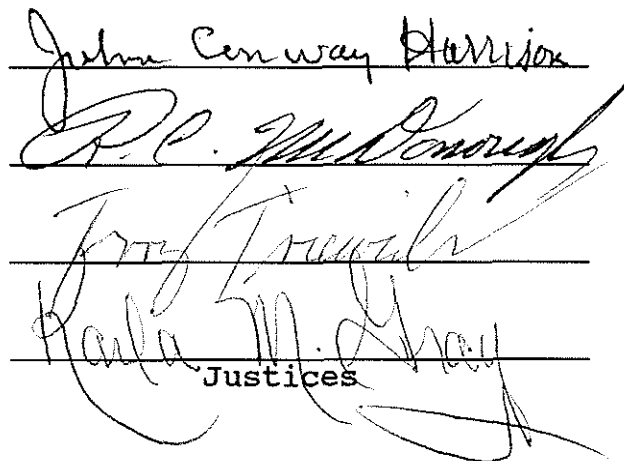 John Conway Harrison
R. C. McDonough
Terry Trieweiler
Karla M. Gray
Justices